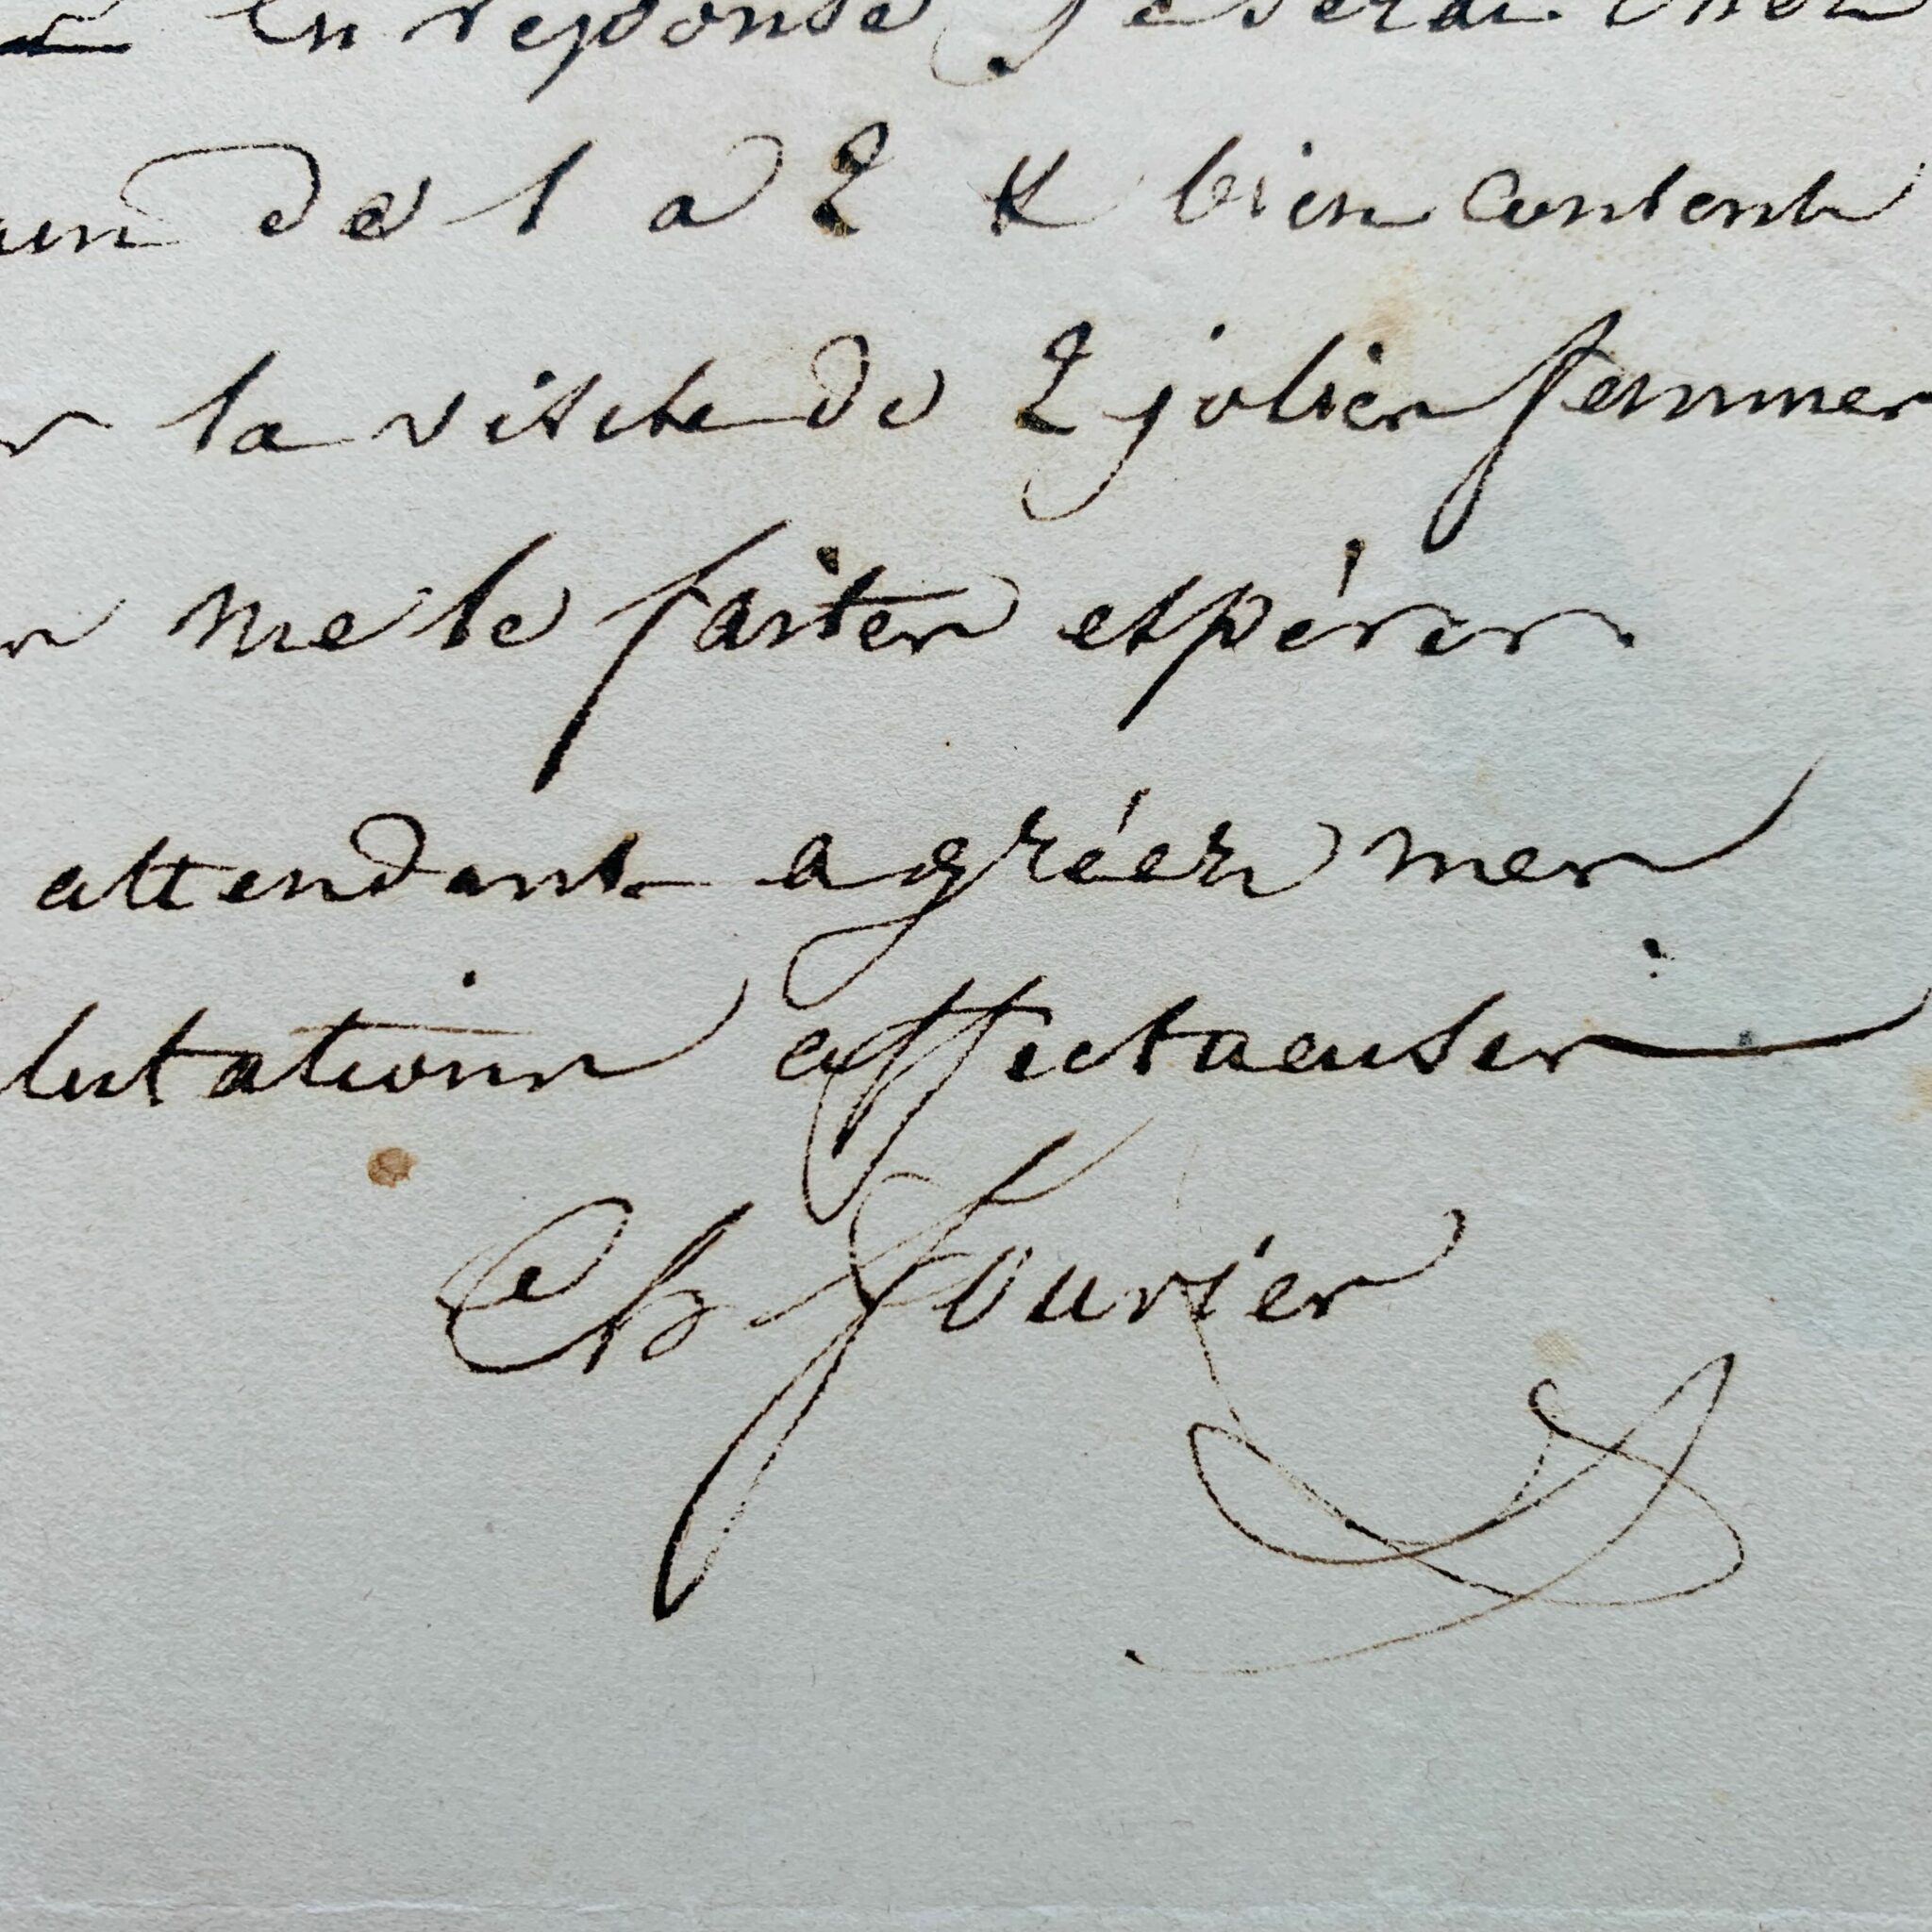 en réponse je serai chez
de 1 a 2 & bien content
la visite de 2 jolies femmes
me le faites espérer
attendant agréez mes
lutations affectueuses
Ch Fourier